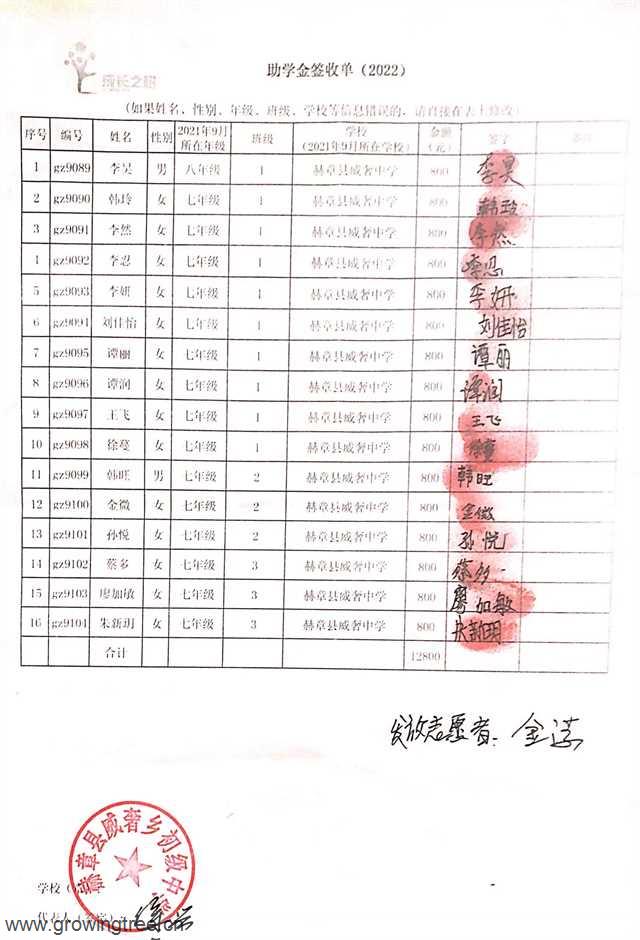 成长之树
助学金签收单（2022）
（如果姓名、性别、年级、班级、学校等信息错误的，请直接在表上修改）
序号 编号 姓名 性别 2021年9月所在年级 班级 学校（2021年9月所在学校） 金额（元） 签字 备注
1 gz9089 李昊 男 八年级 1 赫章县威奢中学 800 李昊
2 gz9090 韩玲 女 七年级 1 赫章县威奢中学 800 韩玲
3 gz9091 李然 女 七年级 1 赫章县威奢中学 800 李然
4 gz9092 李忍 女 七年级 1 赫章县威奢中学 800 李忍
5 gz9093 李妍 女 七年级 1 赫章县威奢中学 800 李妍
6 gz9094 刘佳怡 女 七年级 1 赫章县威奢中学 800 刘佳怡
7 gz9095 谭丽 女 七年级 1 赫章县威奢中学 800 谭丽
8 gz9096 谭润 女 七年级 1 赫章县威奢中学 800 谭润
9 gz9097 王飞 女 七年级 1 赫章县威奢中学 800 王飞
10 gz9098 徐蔓 女 七年级 1 赫章县威奢中学 800
11 gz9099 韩旺 男 七年级 2 赫章县威奢中学 800 韩旺
12 gz9100 金微 女 七年级 2 赫章县威奢中学 800 金微
13 gz9101 孙悦 女 七年级 2 赫章县威奢中学 800 孙悦
14 gz9102 蔡多 女 七年级 3 赫章县威奢中学 800 蔡多
15 gz9103 廖加敏 女 七年级 3 赫章县威奢中学 800 廖加敏
16 gz9104 朱新玥 女 七年级 3 赫章县威奢中学 800 朱新玥
合计 12800
发放志愿者：金
赫章县威奢乡初级中学
学校（
代表人（
www.growingtree.cn